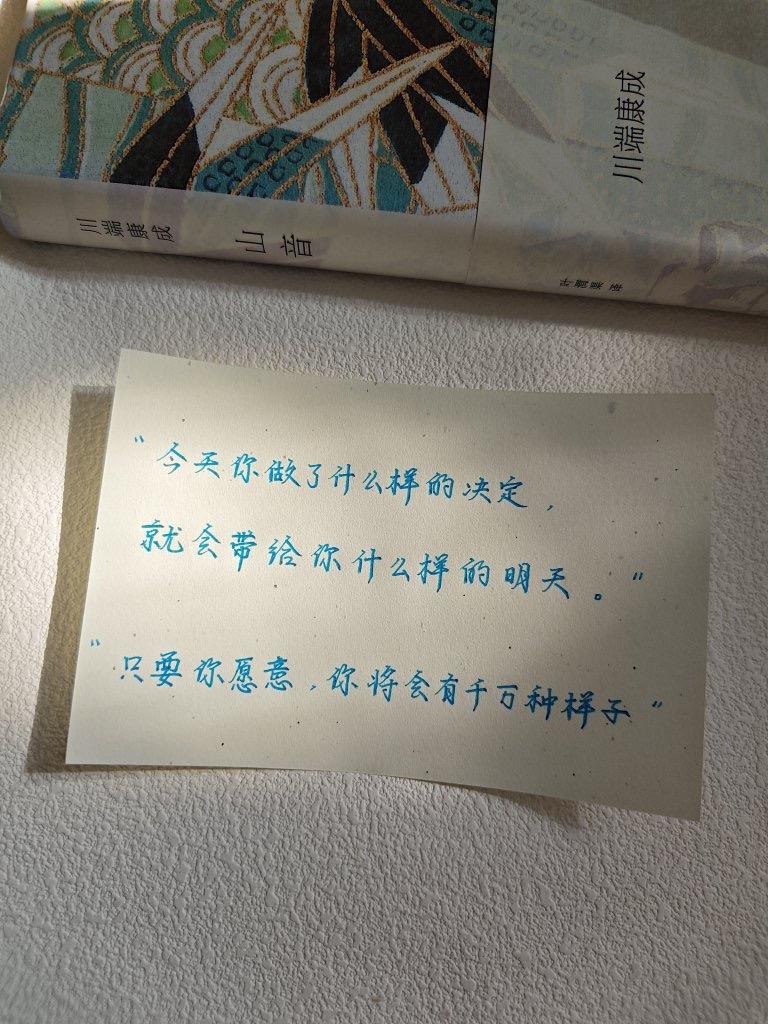 川端康成
川端康成 山音
叶渭渠 译
“今天你做了什么样的决定，
就会带给你什么样的明天。”
“只要你愿意，你将会有千万种样子”